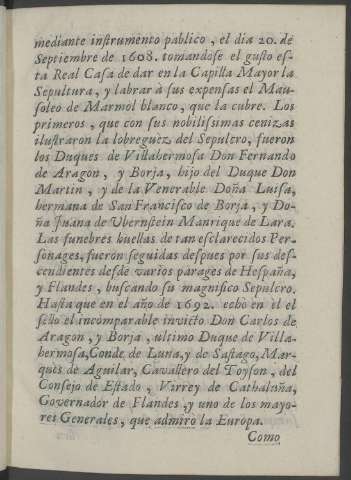 mediante instrumento publico, el dia 20. de
Septiembre de 1608. tomandose el gusto es-
ta Real Casa de dar en la Capilla Mayor la
Sepultura, y labrar à sus expensas el Mau-
soleo de Marmol blanco, que la cubre. Los
primeros, que con sus nobilissimas cenizas
ilustraron la lobreguèz del Sepulcro, fueron
los Duques de Villahermosa Don Fernando
de Aragon, y Borja, hijo del Duque Don
Martin, y de la Venerable Doña Luisa,
hermana de San Francisco de Borja, y Do-
ña Juana de Vbernstein Manrique de Lara.
Las funebres huellas de tan esclarecidos Per-
sonages, fueron seguidas despues por sus des-
cendientes desde varios parages de Hespaña,
y Flandes, buscando su magnifico Sepulcro.
Hasta que en el año de 1692. echò en èl el
sello el incomparable invicto Don Carlos de
Aragon, y Borja, ultimo Duque de Villa-
hermosa, Conde de Luna, y de Sastago, Mar-
quès de Aguilar, Cavallero del Toyson, del
Consejo de Estado, Virrey de Cathaluña,
Governador de Flandes, y uno de los mayo-
res Generales, que admirò la Europa.
Como